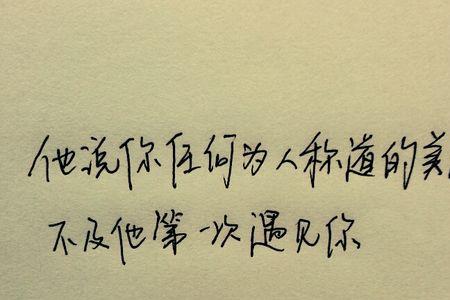 他说你任何为人称道的美
不及他第一次遇见你